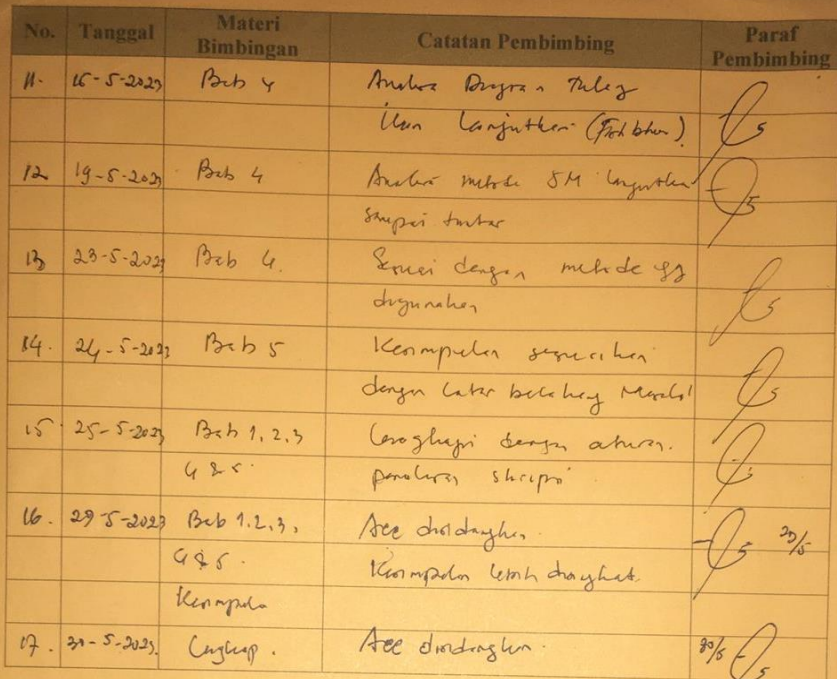 No. Tanggal Materi Bimbingan Catatan Pembimbing Paraf Pembimbing
11. 16-5-2023 Bab 4 Analisa Diagram Tulang
Ikan lanjutkan (Fishbone)
12 19-5-2023 Bab 4 Analisis metode 5M lanjutkan
sampai tuntas
13 23-5-2023 Bab 4. Sesuai dengan metode yg
digunakan
14. 24-5-2023 Bab 5 Kesimpulan sesuaikan
dengan latar belakang Masalah
15 25-5-2023 Bab 1, 2, 3 Lengkapi dengan aturan
4 & 5. penulisan skripsi
16. 29-5-2023 Bab 1, 2, 3, Acc disidangkan
4 & 5. Kesimpulan lebih disingkat
Kesimpulan
29/5
17. 30-5-2023. Lengkap. Acc disidangkan 30/5